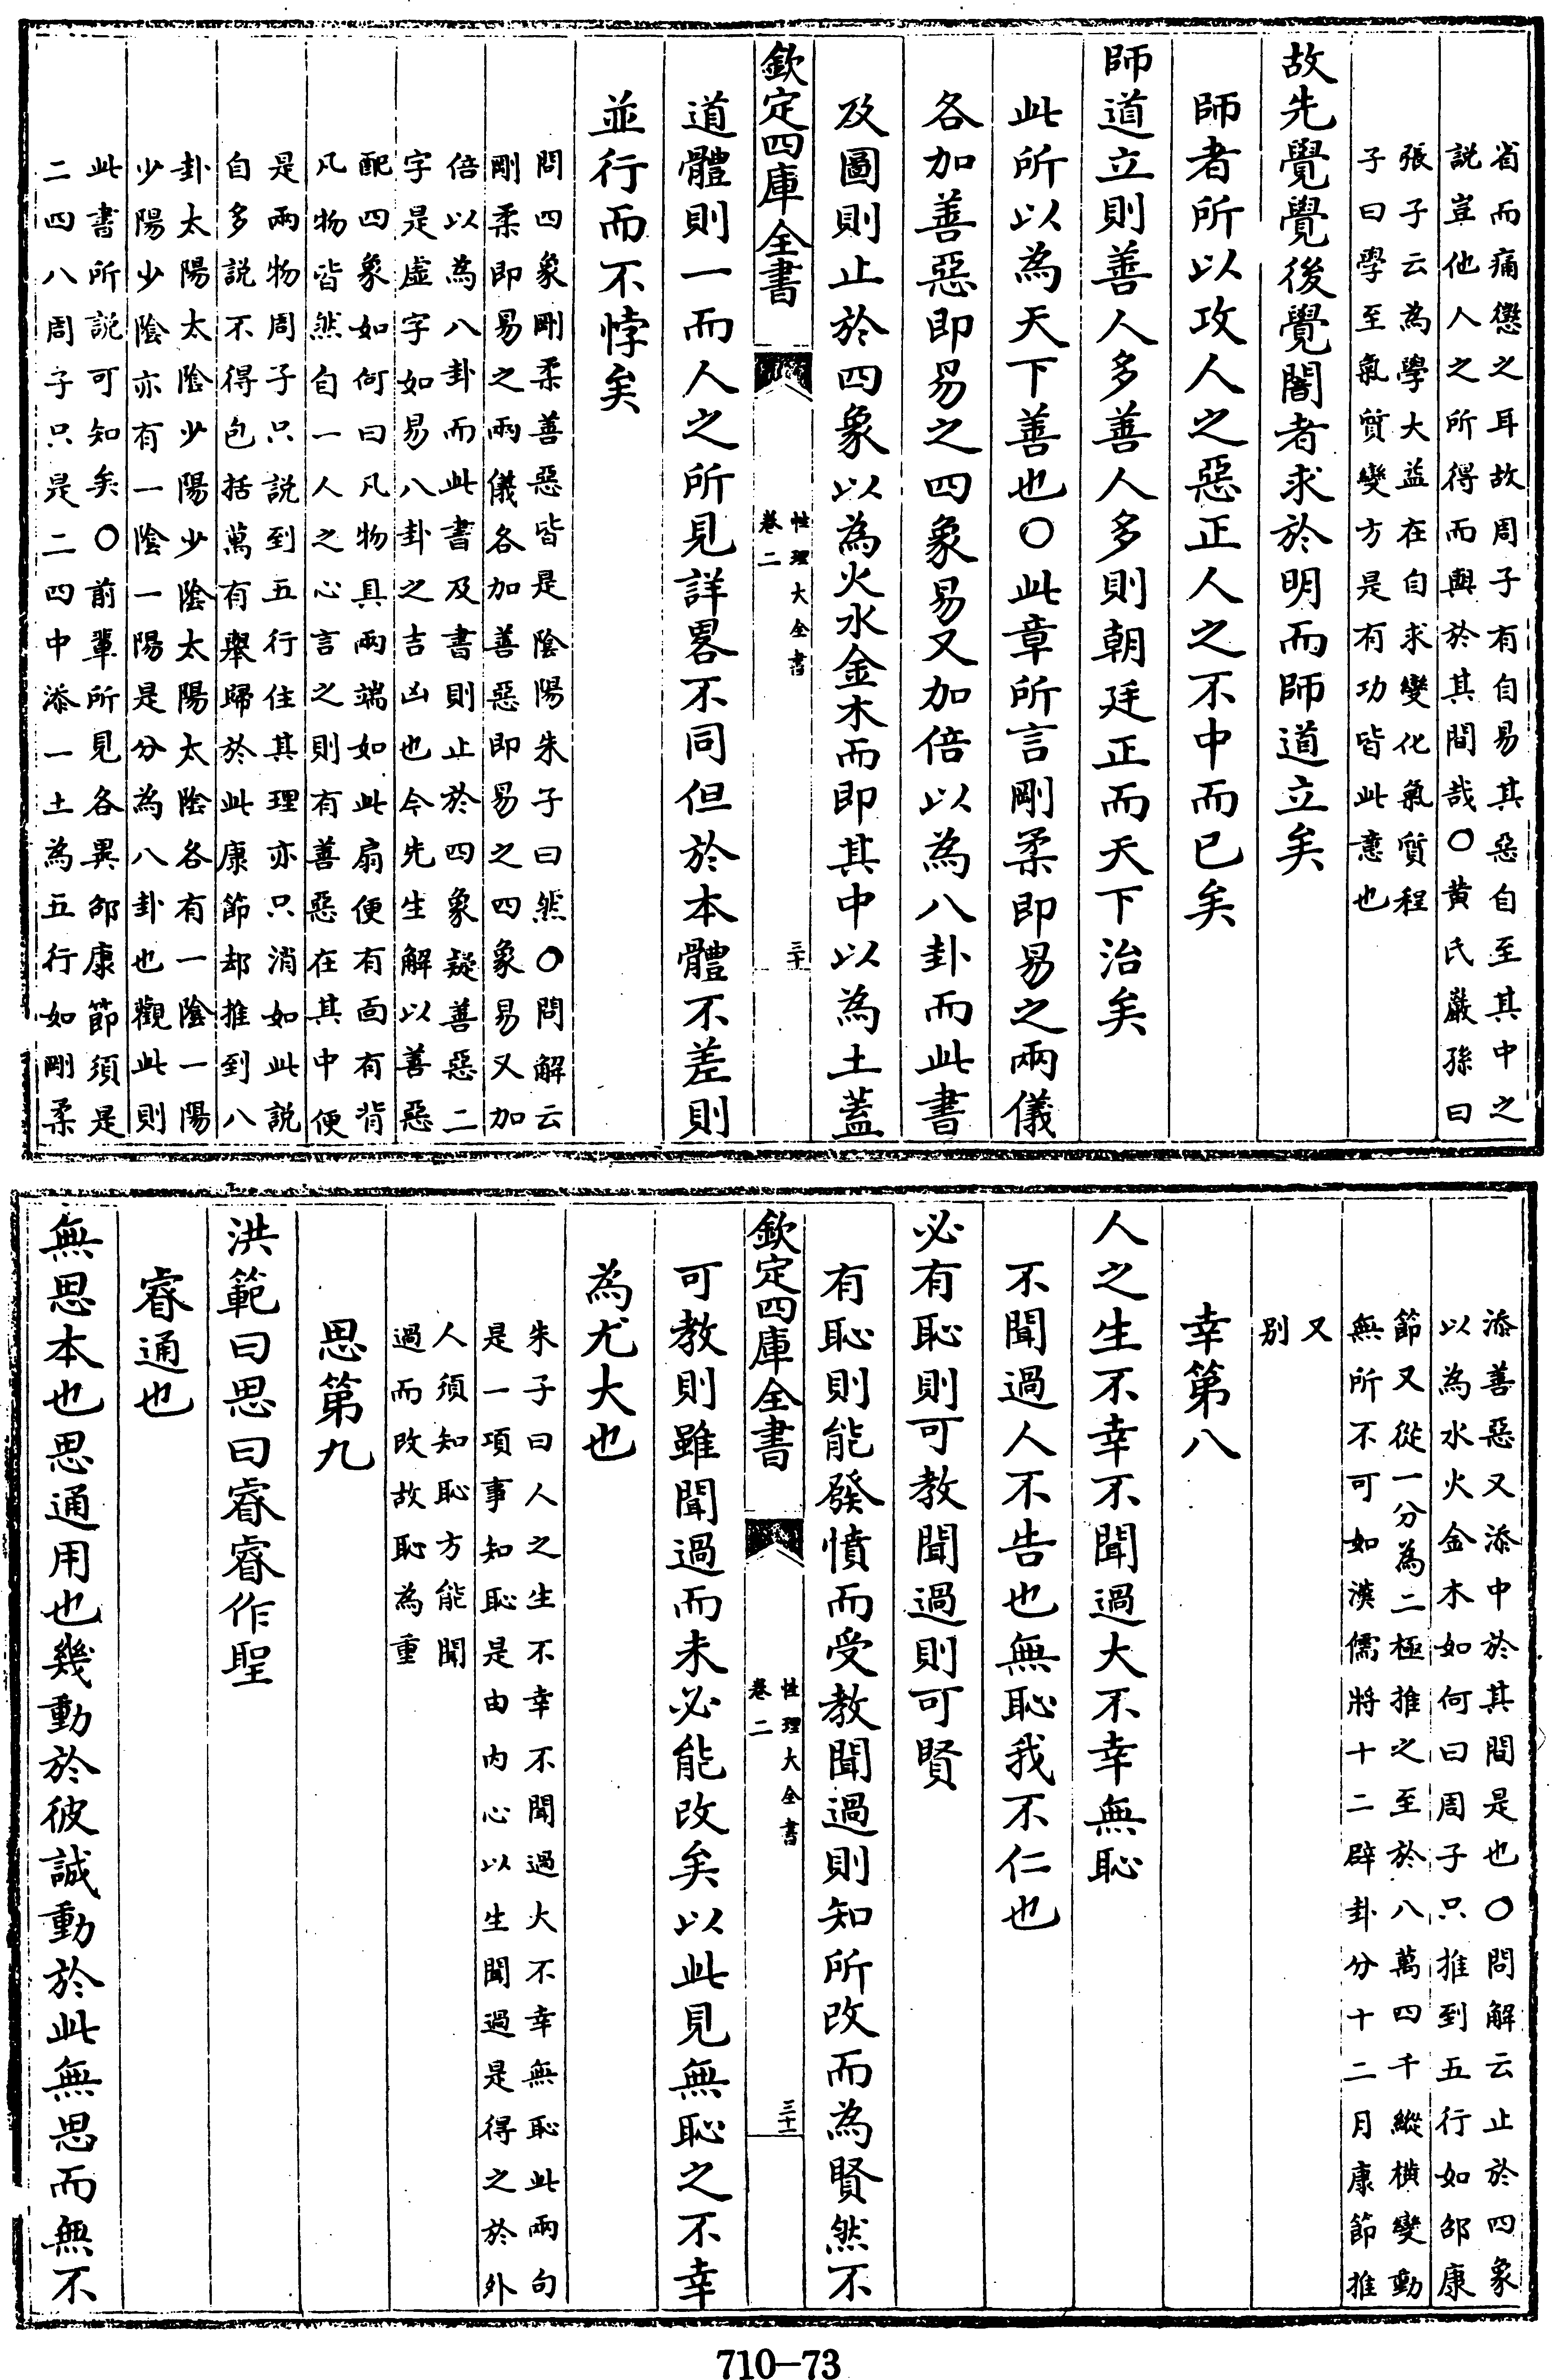 省而痛懲之耳故周子有自易其惡自至其中之
説豈他人之所得而與於其間哉○黄氏巖孫曰
張子云為學大益在自求變化氣質程
子曰學至氣質變方是有功皆此意也
故先覺覺後覺闇者求於明而師道立矣
師者所以攻人之惡正人之不中而已矣
師道立則善人多善人多則朝廷正而天下治矣
此所以為天下善也○此章所言剛柔即易之兩儀
各加善惡即易之四象易又加倍以為八卦而此書
及圖則止於四象以為火水金木而即其中以為土蓋
欽定四庫全書
性理大全書
卷二
三十
道體則一而人之所見詳畧不同但於本體不差則
並行而不悖矣
問四象剛柔善惡皆是陰陽朱子曰然○問解云
剛柔即易之兩儀各加善惡即易之四象易又加
倍以為八卦而此書及書則止於四象疑善惡二
字是虚字如易八卦之吉凶也今先生解以善惡
配四象如何曰凡物具兩端如此扇便有面有背
凡物皆然自一人之心言之則有善惡在其中便
是兩物周子只説到五行住其理亦只消如此説
自多説不得包括萬有舉歸於此康節却推到八
卦太陽太陰少陽少陰太陽太陰各有一陰一陽
少陽少陰亦有一陰一陽是分為八卦也觀此則
此書所説可知矣○前輩所見各異邵康節須是
二四八周子只是二四中添一土為五行如剛柔
添善惡又添中於其間是也○問解云止於四象
以為水火金木如何曰周子只推到五行如邵康
節又從一分為二極推之至於八萬四千縱横變動
無所不可如漢儒將十二辟卦分十二月康節推
又
别
幸第八
人之生不幸不聞過大不幸無恥
不聞過人不告也無恥我不仁也
必有恥則可教聞過則可賢
有恥則能發憤而受教聞過則知所改而為賢然不
欽定四庫全書
性理大全書
卷二
三十一
可教則雖聞過而未必能改矣以此見無恥之不幸
為尤大也
朱子曰人之生不幸不聞過大不幸無恥此兩句
是一項事知恥是由内心以生聞過是得之於外
人須知恥方能聞
過而改故恥為重
思第九
洪範曰思曰睿睿作聖
睿通也
無思本也思通用也幾動於彼誠動於此無思而無不
710-73